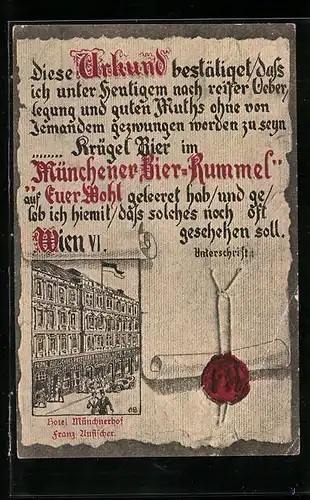 Diese Urkund bestätiget/daß
ich unter Heutigem nach reifer Ueber/
legung und guten Muths ohne von
Jemandem gezwungen worden zu seyn
........ Krügel Bier im
"Münchener Bier-Rummel"
auf Euer Wohl geleeret hab/und ge/
lob ich hiemit/daß solches noch oft
geschehen soll.
Wien VI.
Unterschrift:
Hotel Münchnerhof
Franz